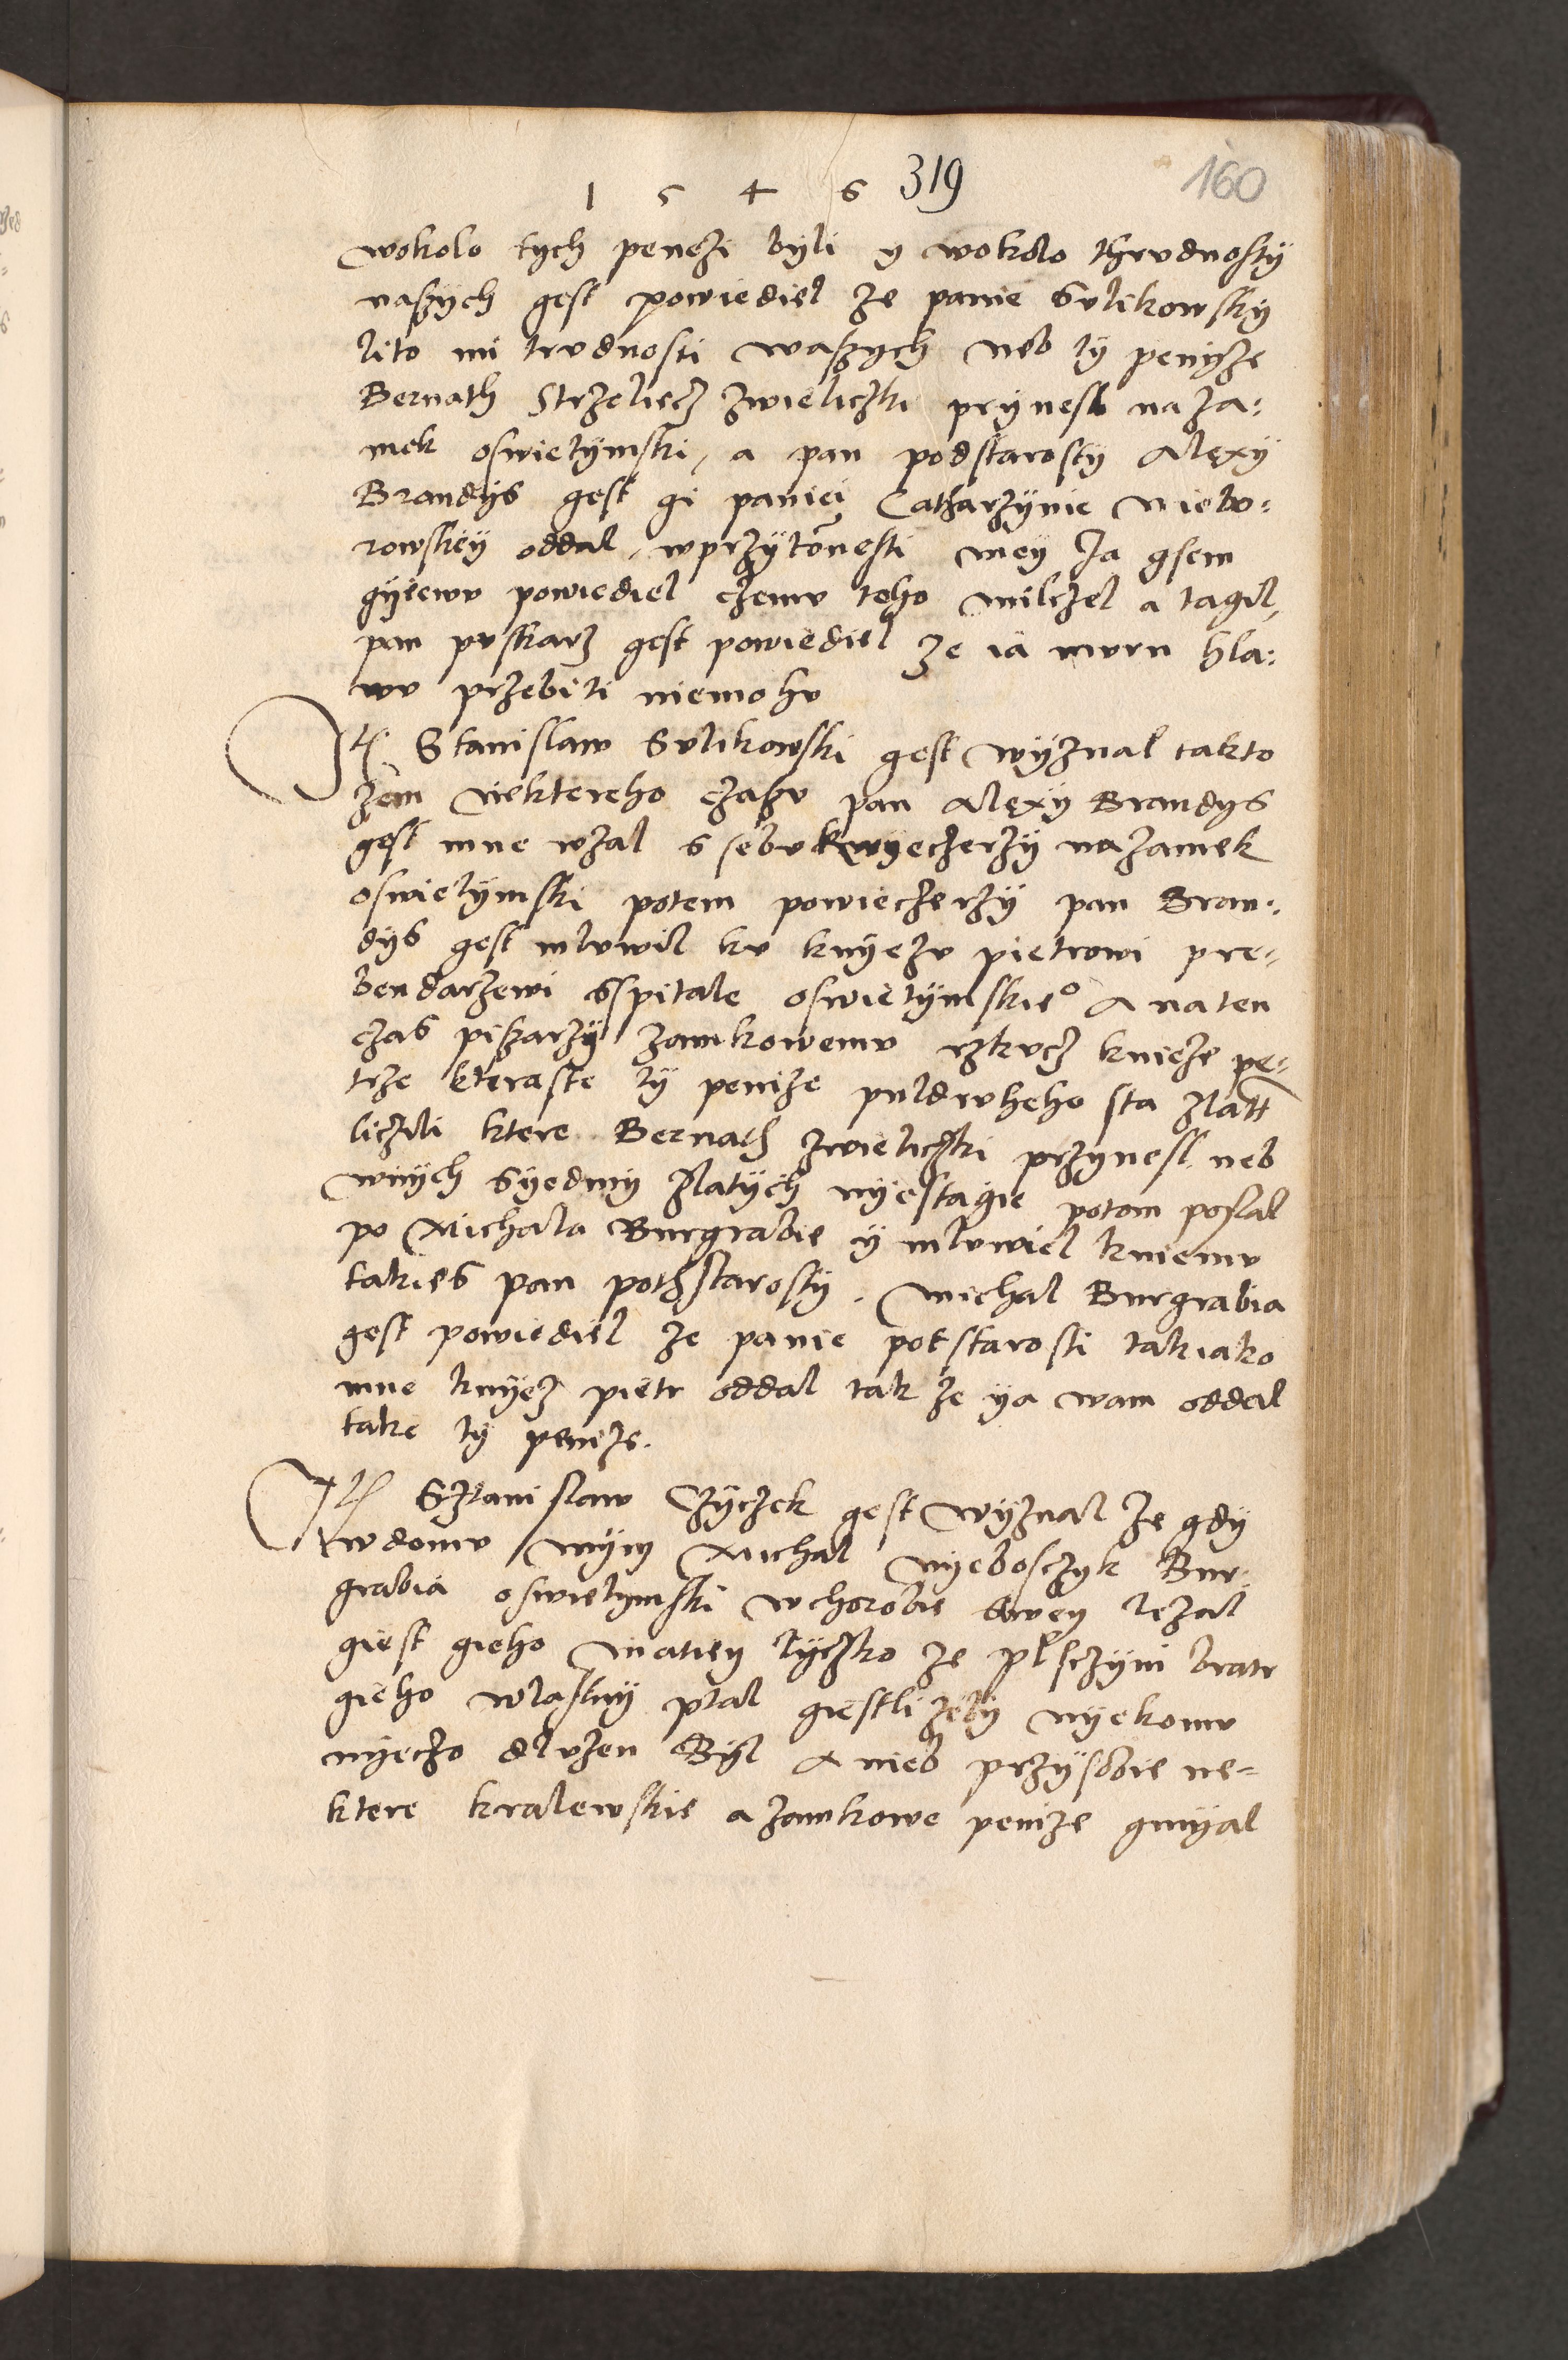 1 5 4 6 319 160
wokolo tych penezi byli y wokolo thrvdnosty
naßych gest powiediel ze panie Svlikowsky
lito mi trvdnosti waßych neb ty penyze
Bernath Strzeliecz zwieliczki prynesl na za:
mek oswietymski, a pan podstarosty Alexy
Brandys gest gi paniei Catharzynie Niebo:
rowskey oddal, wprzytomnesti mey Ja gsem
gyemv powiediel czemv toho milczel a tagil,
pan pvskarz gest powiediel ze ia mvrn hla:
wv przebiti niemohv
It Stanislaw Svlikowski gest wyznal takto
zem niektereho czaßv pan Alexy Brandys
gest mne wzal s sebv kwyeczerzy na zamek
oswietymski potem powieczerzy pan Bran:
dys gest mlvwil kv knyezv pietrowi pre:
bendarzewi sspitale oswietymskieº A na ten
czas pißarzy zamkowemv rzkvcz knieze pe:
trze kteraste ty penize puldrvheho sta zlatt
liczili ktere Bernath zwieliczki przynesl neb
wnych syedmy zlatych nyestagie potom poslal
po Michala Burgrabie y mlvwiel kniemv
takies pan pothstarosty. Michal Burgrabia
gest powiediel ze panie potstarosti takiako
mne knyez pietr oddal tak ze ya wam oddal
take ty penize.
It Sztanislaw Czyczek gest wyznal ze gdy
wdomv mym Michal nyebosczyk Bur:
grabia oswietymski wchorobie swey lezal
giest gieho Matiey lyczko ze plsczyni bratr
gieho wlastny ptal giestli zeby nyekomv
nyeczo dlvzen Byl A nieb przysobie ne:
ktere kralewskie a zamkowe penize gmyal